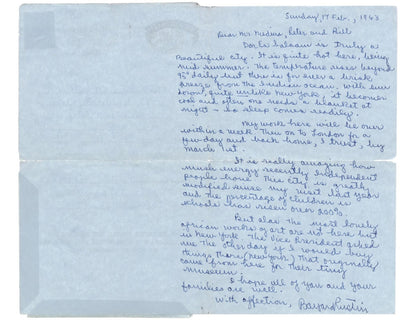 Sunday, 17 Feb., 1963
Dear Mrs Medina, Peter and Bill
Dar es Salaam is truly a
beautiful city. It is quite hot here, being
mid summer. The temperature rises beyond
95° daily but there is for ever a brisk
breeze from the Indian ocean. With sun
down, quite unlike New York, it becomes
cool and often one needs a blanket at
night - so sleep comes readily.
My work here will be over
within a week. Then on to London for a
few days and back home, I trust, by
March 1st.
It is really amazing how
much energy recently independent
people have. This city is greatly
modified since my visit last year
and the percentage of children in
schools has risen over 200%.
But alas the most lovely
african works of art are not here but
in New York. The Vice President asked
me the other day if I would buy
things there (New York) that originally
came from here for their tiny
museum.
I hope all of you and your
families are well.
With affection, Bayard Rustin